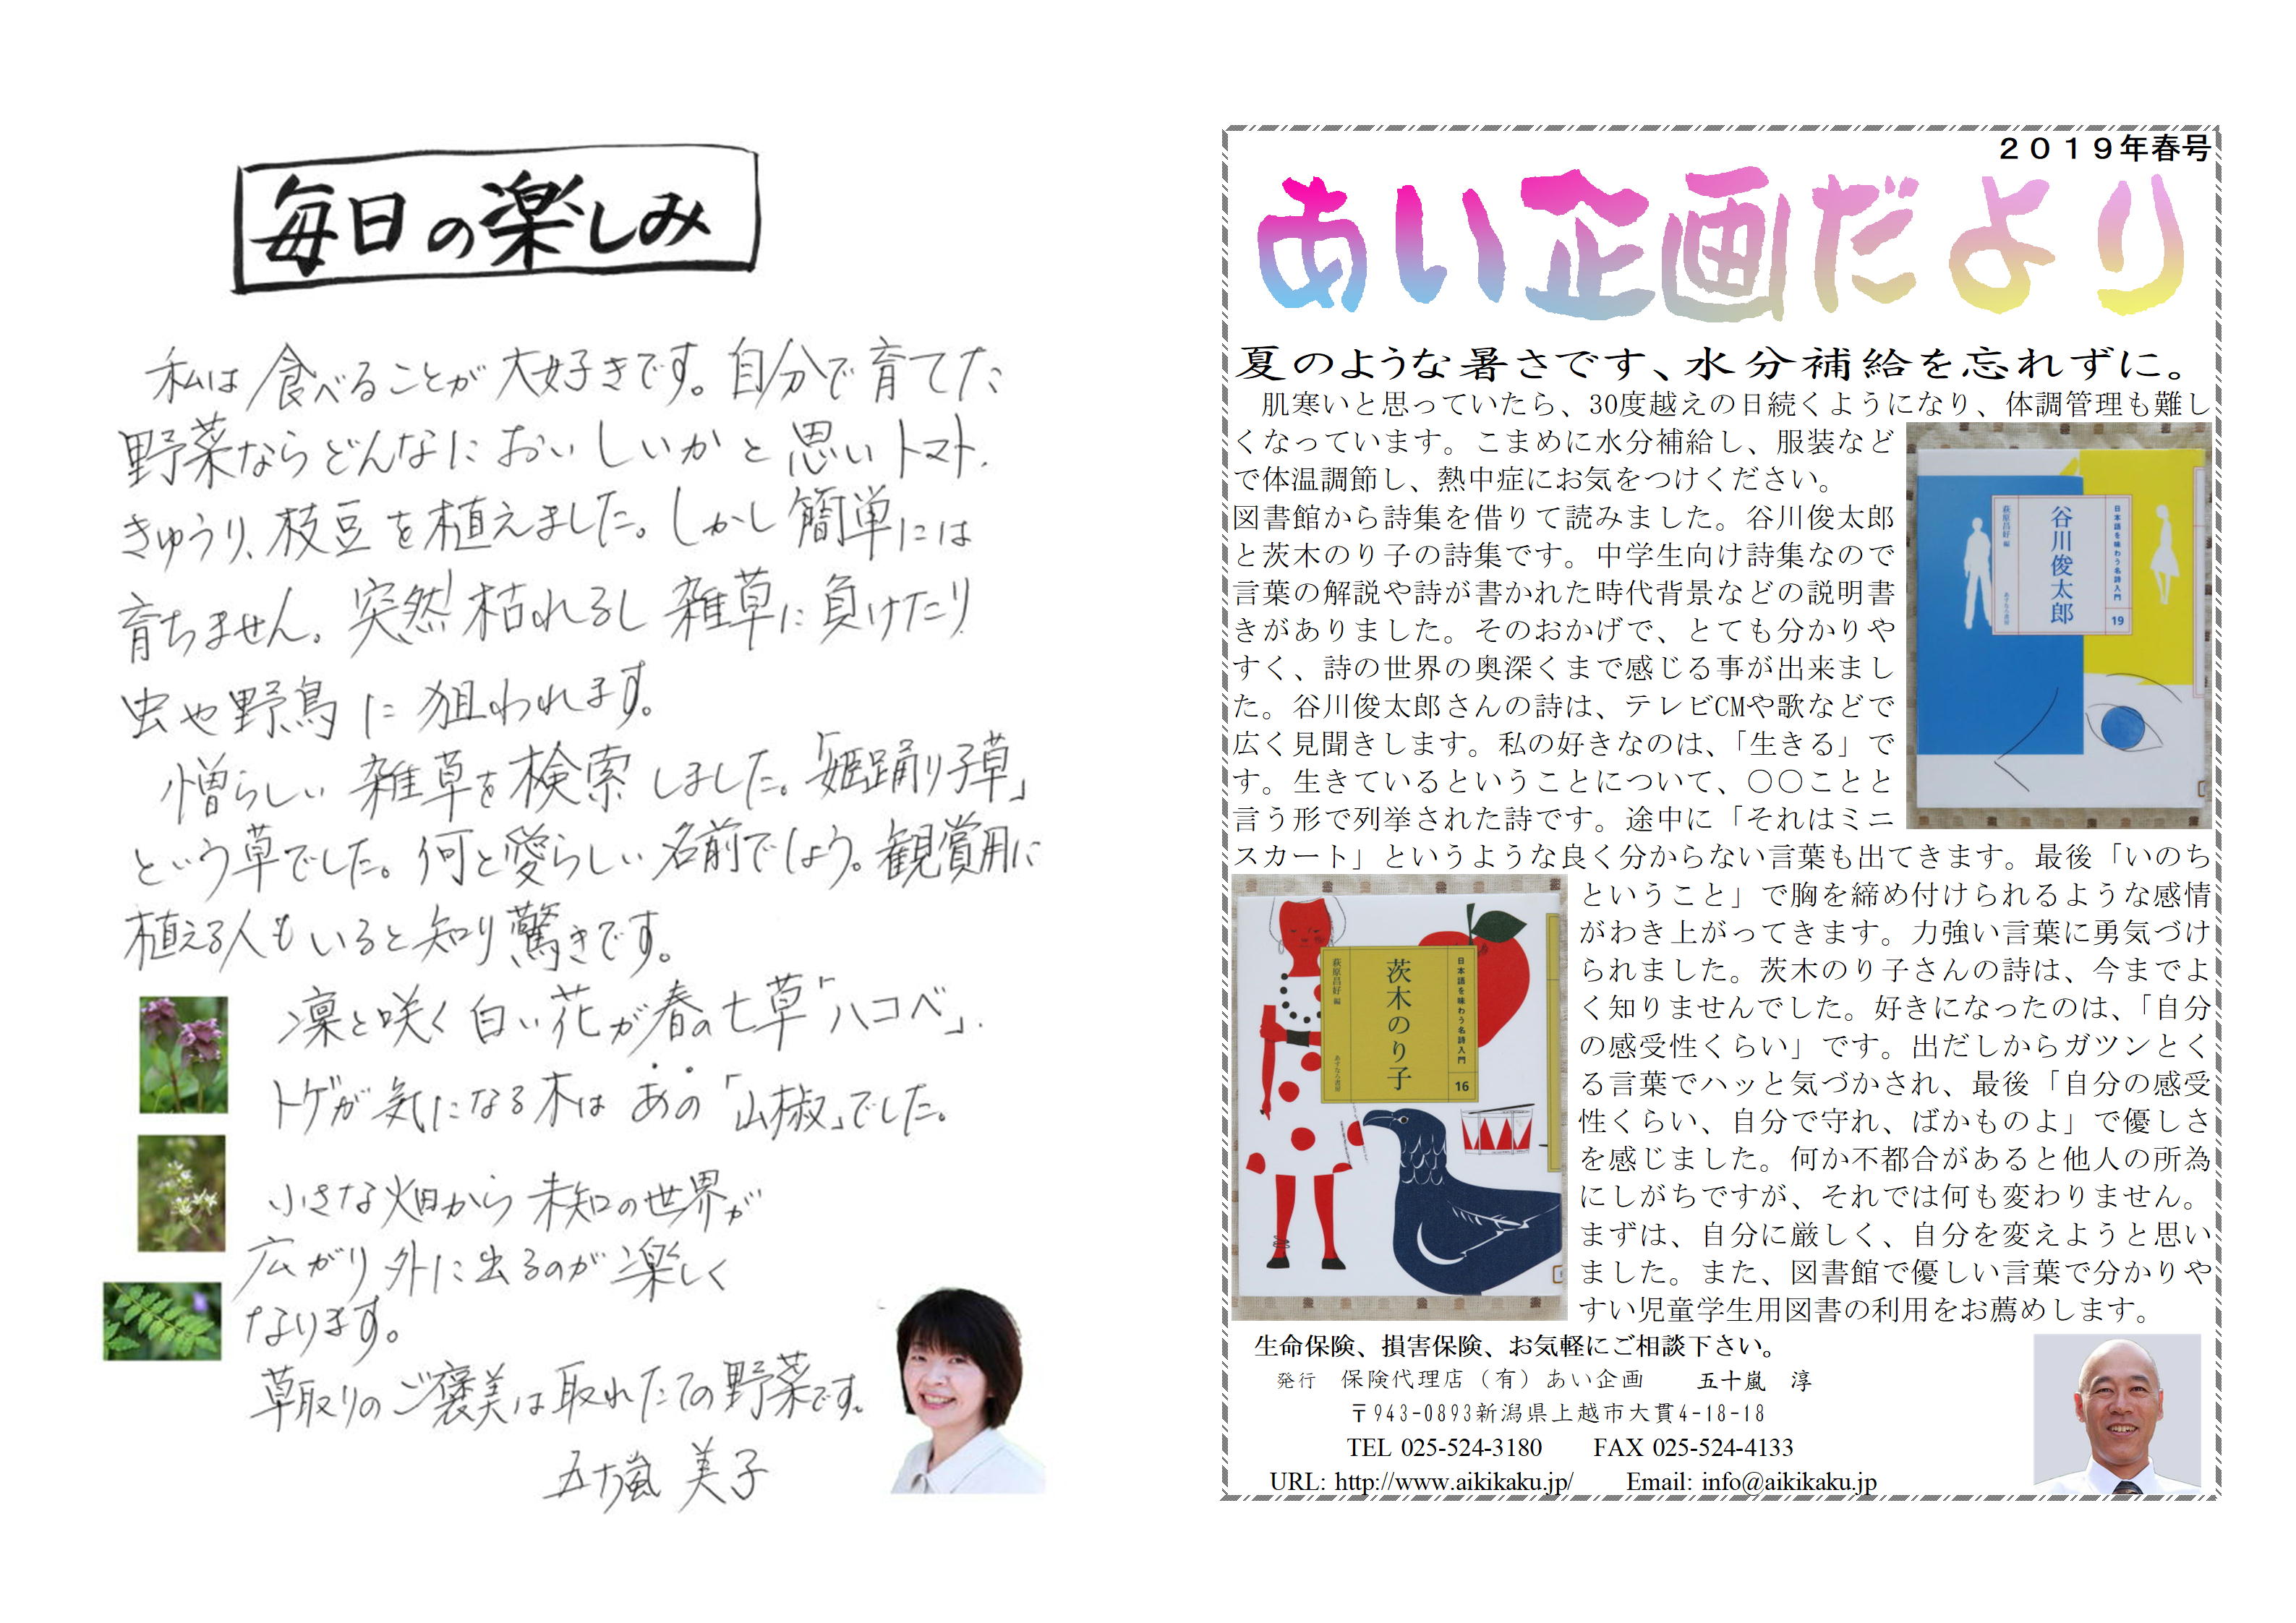 毎日の楽しみ
私は食べることが大好きです。自分で育てた
野菜ならどんなにおいしいかと思いトマト、
きゅうり、枝豆を植えました。しかし簡単には
育ちません。突然枯れるし雑草に負けたり
虫や野鳥に狙われます。
憎らしい雑草を検索しました。「姫踊り子草」
という草でした。何と愛らしい名前でしょう。観賞用に
植える人もいると知り驚きです。
凜と咲く白い花が春の七草「ハコベ」、
トゲが気になる木はあの「山椒」でした。
小さな畑から未知の世界が
広がり外に出るのが楽しく
なります。
草取りのご褒美は取れたての野菜です。
五十嵐 美子
2019年春号
あい企画だより
夏のような暑さです、水分補給を忘れずに。
肌寒いと思っていたら、30度越えの日続くようになり、体調管理も難し
くなっています。こまめに水分補給し、服装など
で体温調節し、熱中症にお気をつけください。
図書館から詩集を借りて読みました。谷川俊太郎
と茨木のり子の詩集です。中学生向け詩集なので
言葉の解説や詩が書かれた時代背景などの説明書
きがありました。そのおかげで、とても分かりや
すく、詩の世界の奥深くまで感じる事が出来まし
た。谷川俊太郎さんの詩は、テレビCMや歌などで
広く見聞きします。私の好きなのは、「生きる」で
す。生きているということについて、〇〇ことと
言う形で列挙された詩です。途中に「それはミニ
スカート」というような良く分からない言葉も出てきます。最後「いのち
ということ」で胸を締め付けられるような感情
がわき上がってきます。力強い言葉に勇気づけ
られました。茨木のり子さんの詩は、今までよ
く知りませんでした。好きになったのは、「自分
の感受性くらい」です。出だしからガツンとく
る言葉でハッと気づかされ、最後「自分の感受
性くらい、自分で守れ、ばかものよ」で優しさ
を感じました。何か不都合があると他人の所為
にしがちですが、それでは何も変わりません。
まずは、自分に厳しく、自分を変えようと思い
ました。また、図書館で優しい言葉で分かりや
すい児童学生用図書の利用をお薦めします。
日本語を味わう名詩入門
19
谷川俊太郎
萩原昌好 編
あすなろ書房
日本語を味わう名詩入門
16
茨木のり子
萩原昌好 編
あすなろ書房
生命保険、損害保険、お気軽にご相談下さい。
発行 保険代理店（有）あい企画 五十嵐 淳
〒943-0893新潟県上越市大貫4-18-18
TEL 025-524-3180 FAX 025-524-4133
URL: http://www.aikikaku.jp/ Email: info@aikikaku.jp